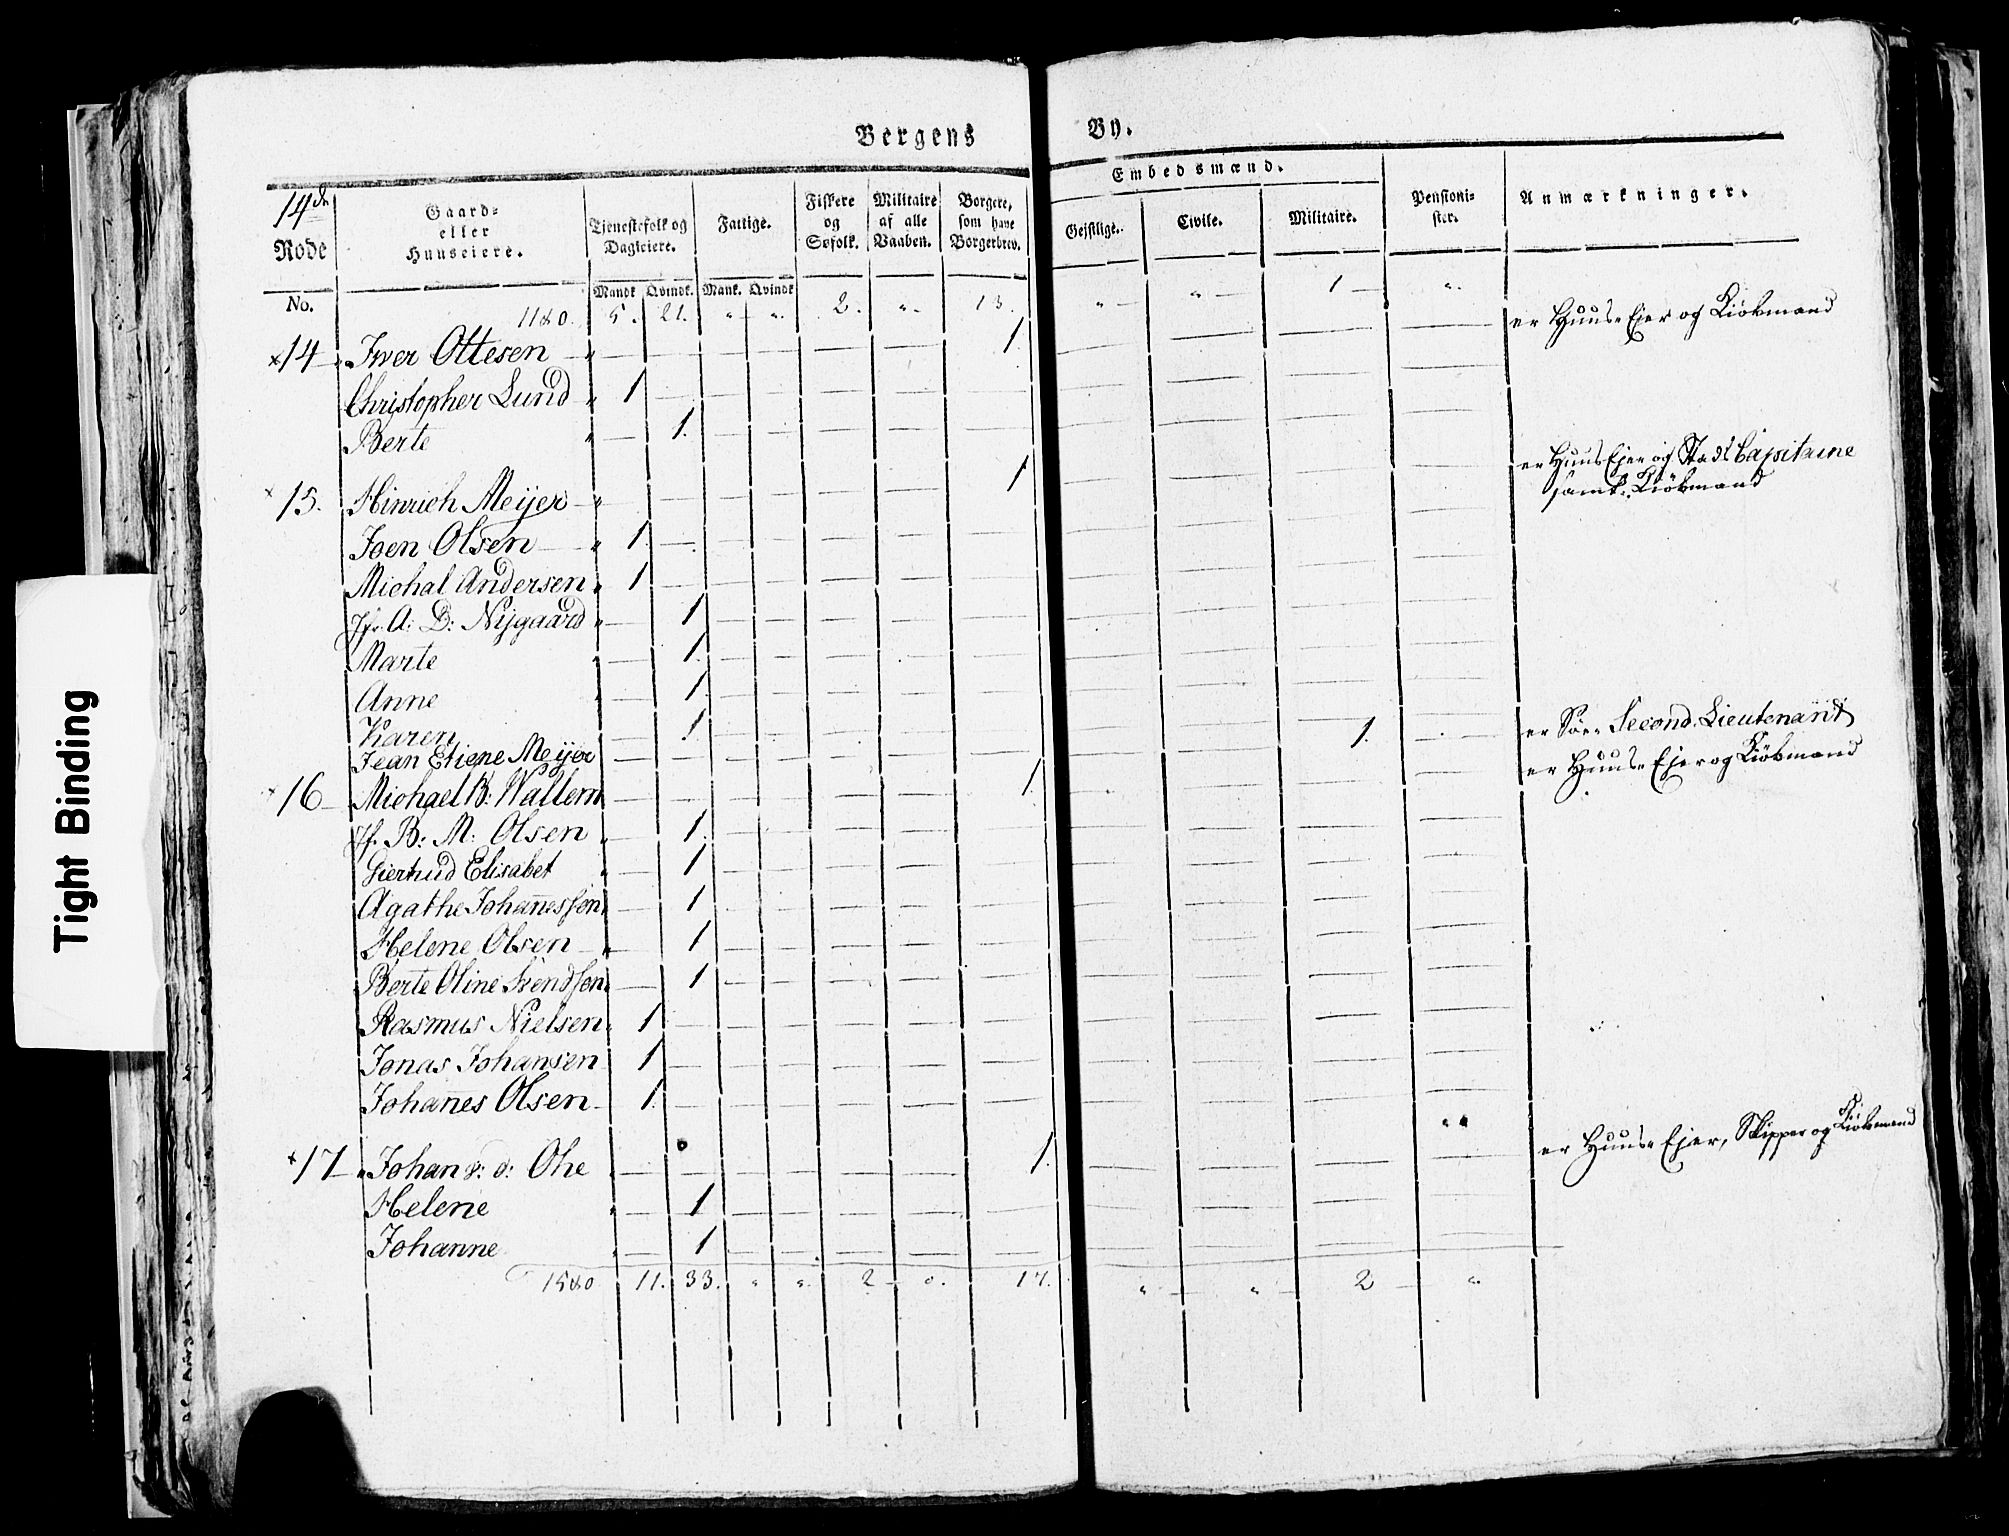 Bergens By.
14de Rode No.
Gaard- eller Huuseiere.
Tjenestefolk og Dagleiere.
Fattige.
Fiskere og Søfolk.
Militaire af alle Vaaben.
Borgere, som have Borgerbrev.
Embedsmænd.
Gejstlige.
Civile.
Militaire.
Pensionister.
Anmærkninger.
Mandk. Qvindk. Mank. Qvindk
5. 21. „ „ 2. „ 13. „ „ 1 „
14 Iver Ottesen 1. er Huus-Ejer og Kiøbmand
Christopher Lund 1
Berte 1.
15. Hinrich Meijer 1 er Huus Ejer og Stads Capitaine
samt Kiøbmand
Joen Olsen 1.
Michal Andersen 1
Jfr. A: D: Nijgaard 1
Marte 1.
Anne 1
Karen 1.
Jean Etiene Meijer 1. er Søe- Second-Lieutenant
16 Michael B: Wallem 1 er Huus-Ejer og Kiøbmand
Jf. B: M: Olsen 1.
Giertrud Elisabet 1
Agathe Johanessen 1
Helene Olsen 1
Berte Oline Svendsen 1
Rasmus Nielsen 1
Jonas Johansen 1
Johanes Olsen 1.
17 Johan Ohe 1. er Huus-Ejer, Skipper og Kiøbmand
Helene 1
Johanne 1
11. 33. „ „ 2 17. „ „ 2 „
Tight Binding